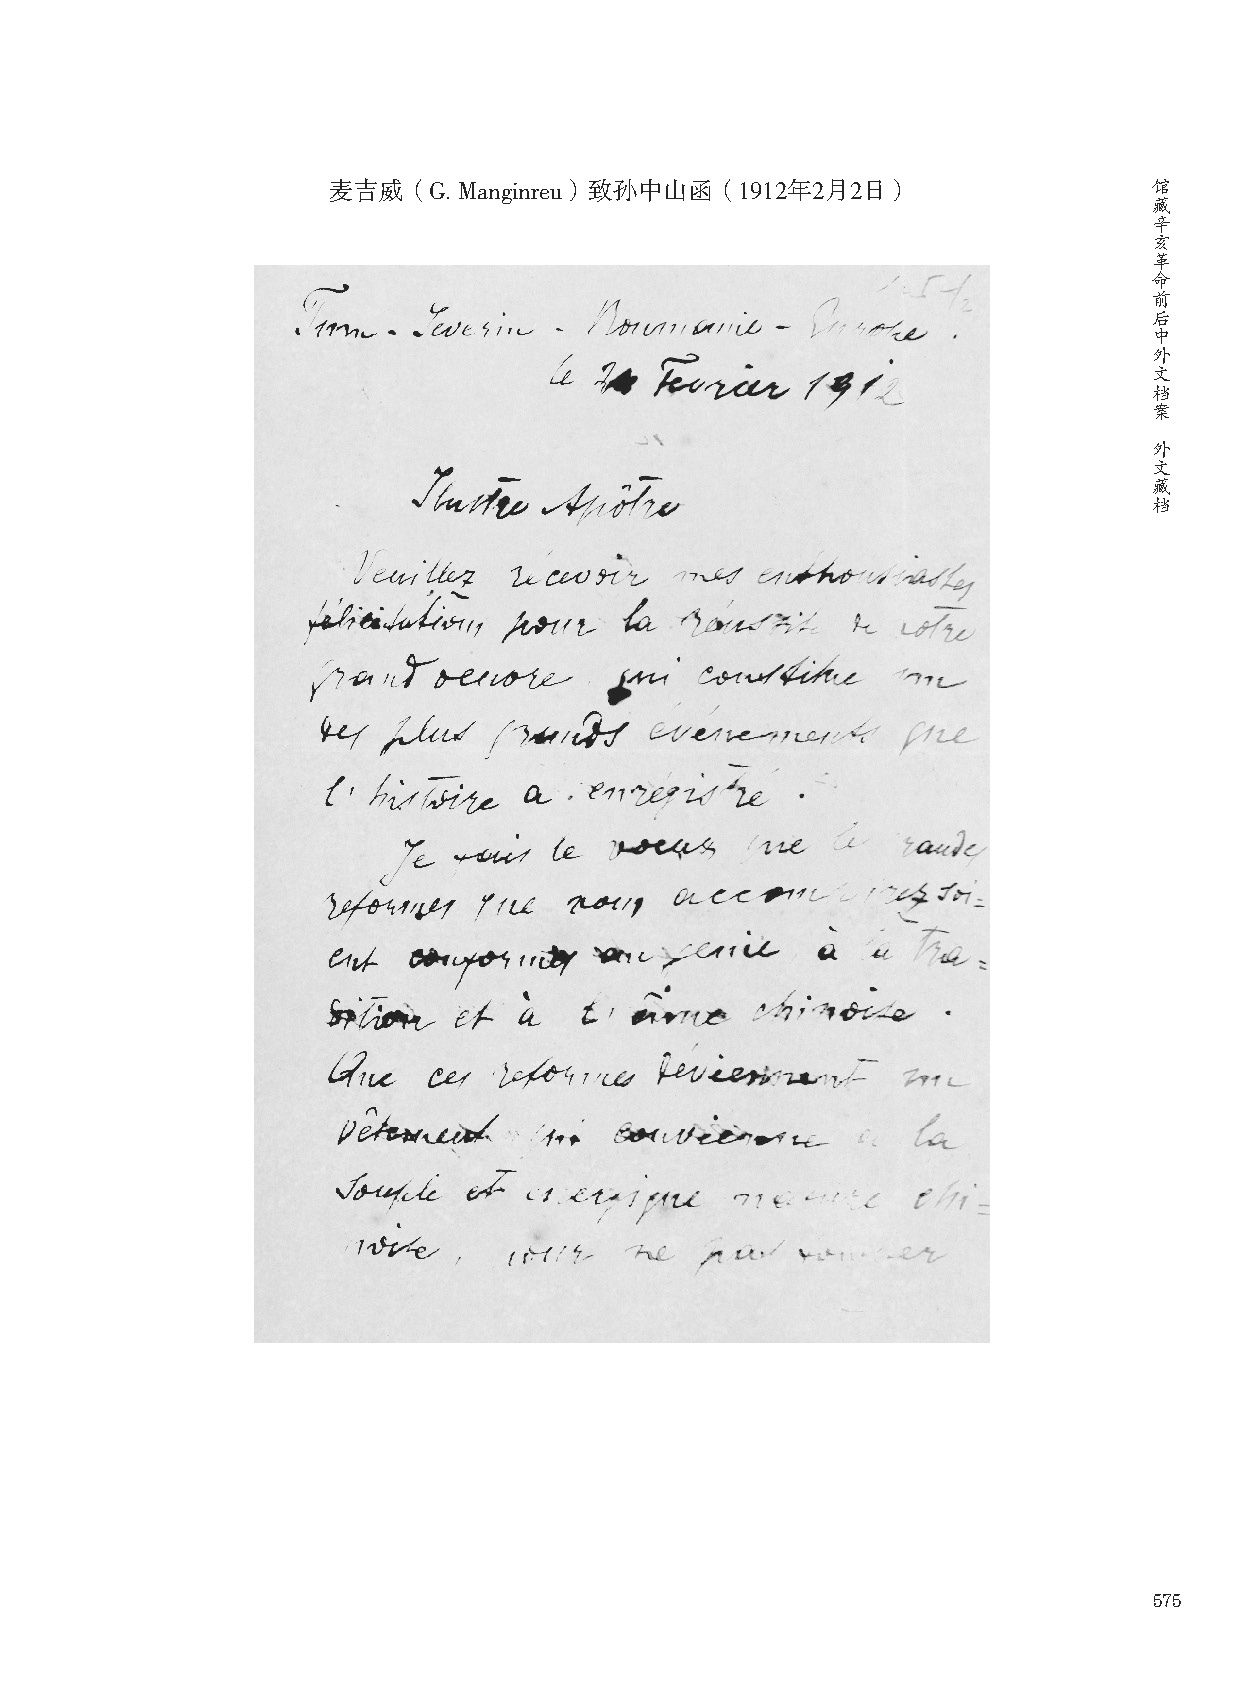 麦吉威（G. Manginreu）致孙中山函（1912年2月2日）
馆藏辛亥革命前后中外文档案 外文藏档
Turn-Severin - Roumanie - Europe.
le 2 Fevrier 1912
Ilustre Apôtre
Veuillez récevoir mes enthousiastes
félicitations pour la réussite de votre
grand oeuvre qui constitue un
des plus grands événements que
l'histoire a enrégistré.
Je fais le voeux que le randes
reformes que vous accom rez soi=
ent conformes au genie à la tra=
dition et à l'âme chinoise.
Que ces reformes déviennent un
vêtement qui convienne a la
souple et energique nature chi=
noise, pour ne pas
575